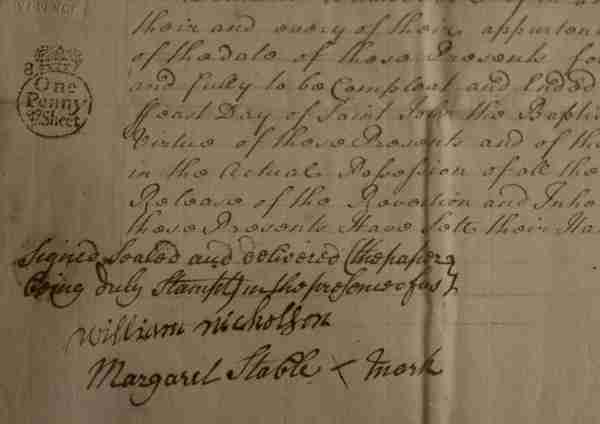 their and every of their appurten
of the date of these Presents fo
and fully to be Compleat and Ended
ffeast Day of Saint John the Baptis
Virtue of these Presents and of the
in the Actual Possession of all the
Release of the Reversion and Inhe
these Presents Have Sett their Han
8
One
Penny
Pr Sheet
Signed Sealed and delivered (the paper
being duly Stampt) in the presence of us}
William Nicholson
Margaret Stable × Mark